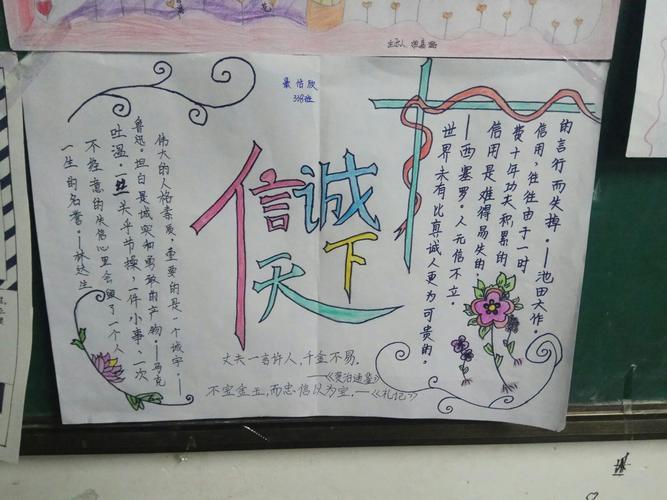 338班
诚信
天下
伟大的人格素质，重要的是一个诚字。——
鲁迅。坦白是诚实和勇敢的产物。——马克
吐温。一丝头半节操，一件小事、一次
不经意的失信心里会毁了一个人
一生的名誉。——林达生
世界未有比真诚人更为可贵的。
——西塞罗。人元信不立。
信用是难得易失的。
费十年功夫积累的
信用，往往由于一时
的言行而失掉。——池田大作。
丈夫一言许人，千金不易。
——《资治通鉴》
不宝金玉，而忠信以为宝。——《礼记》